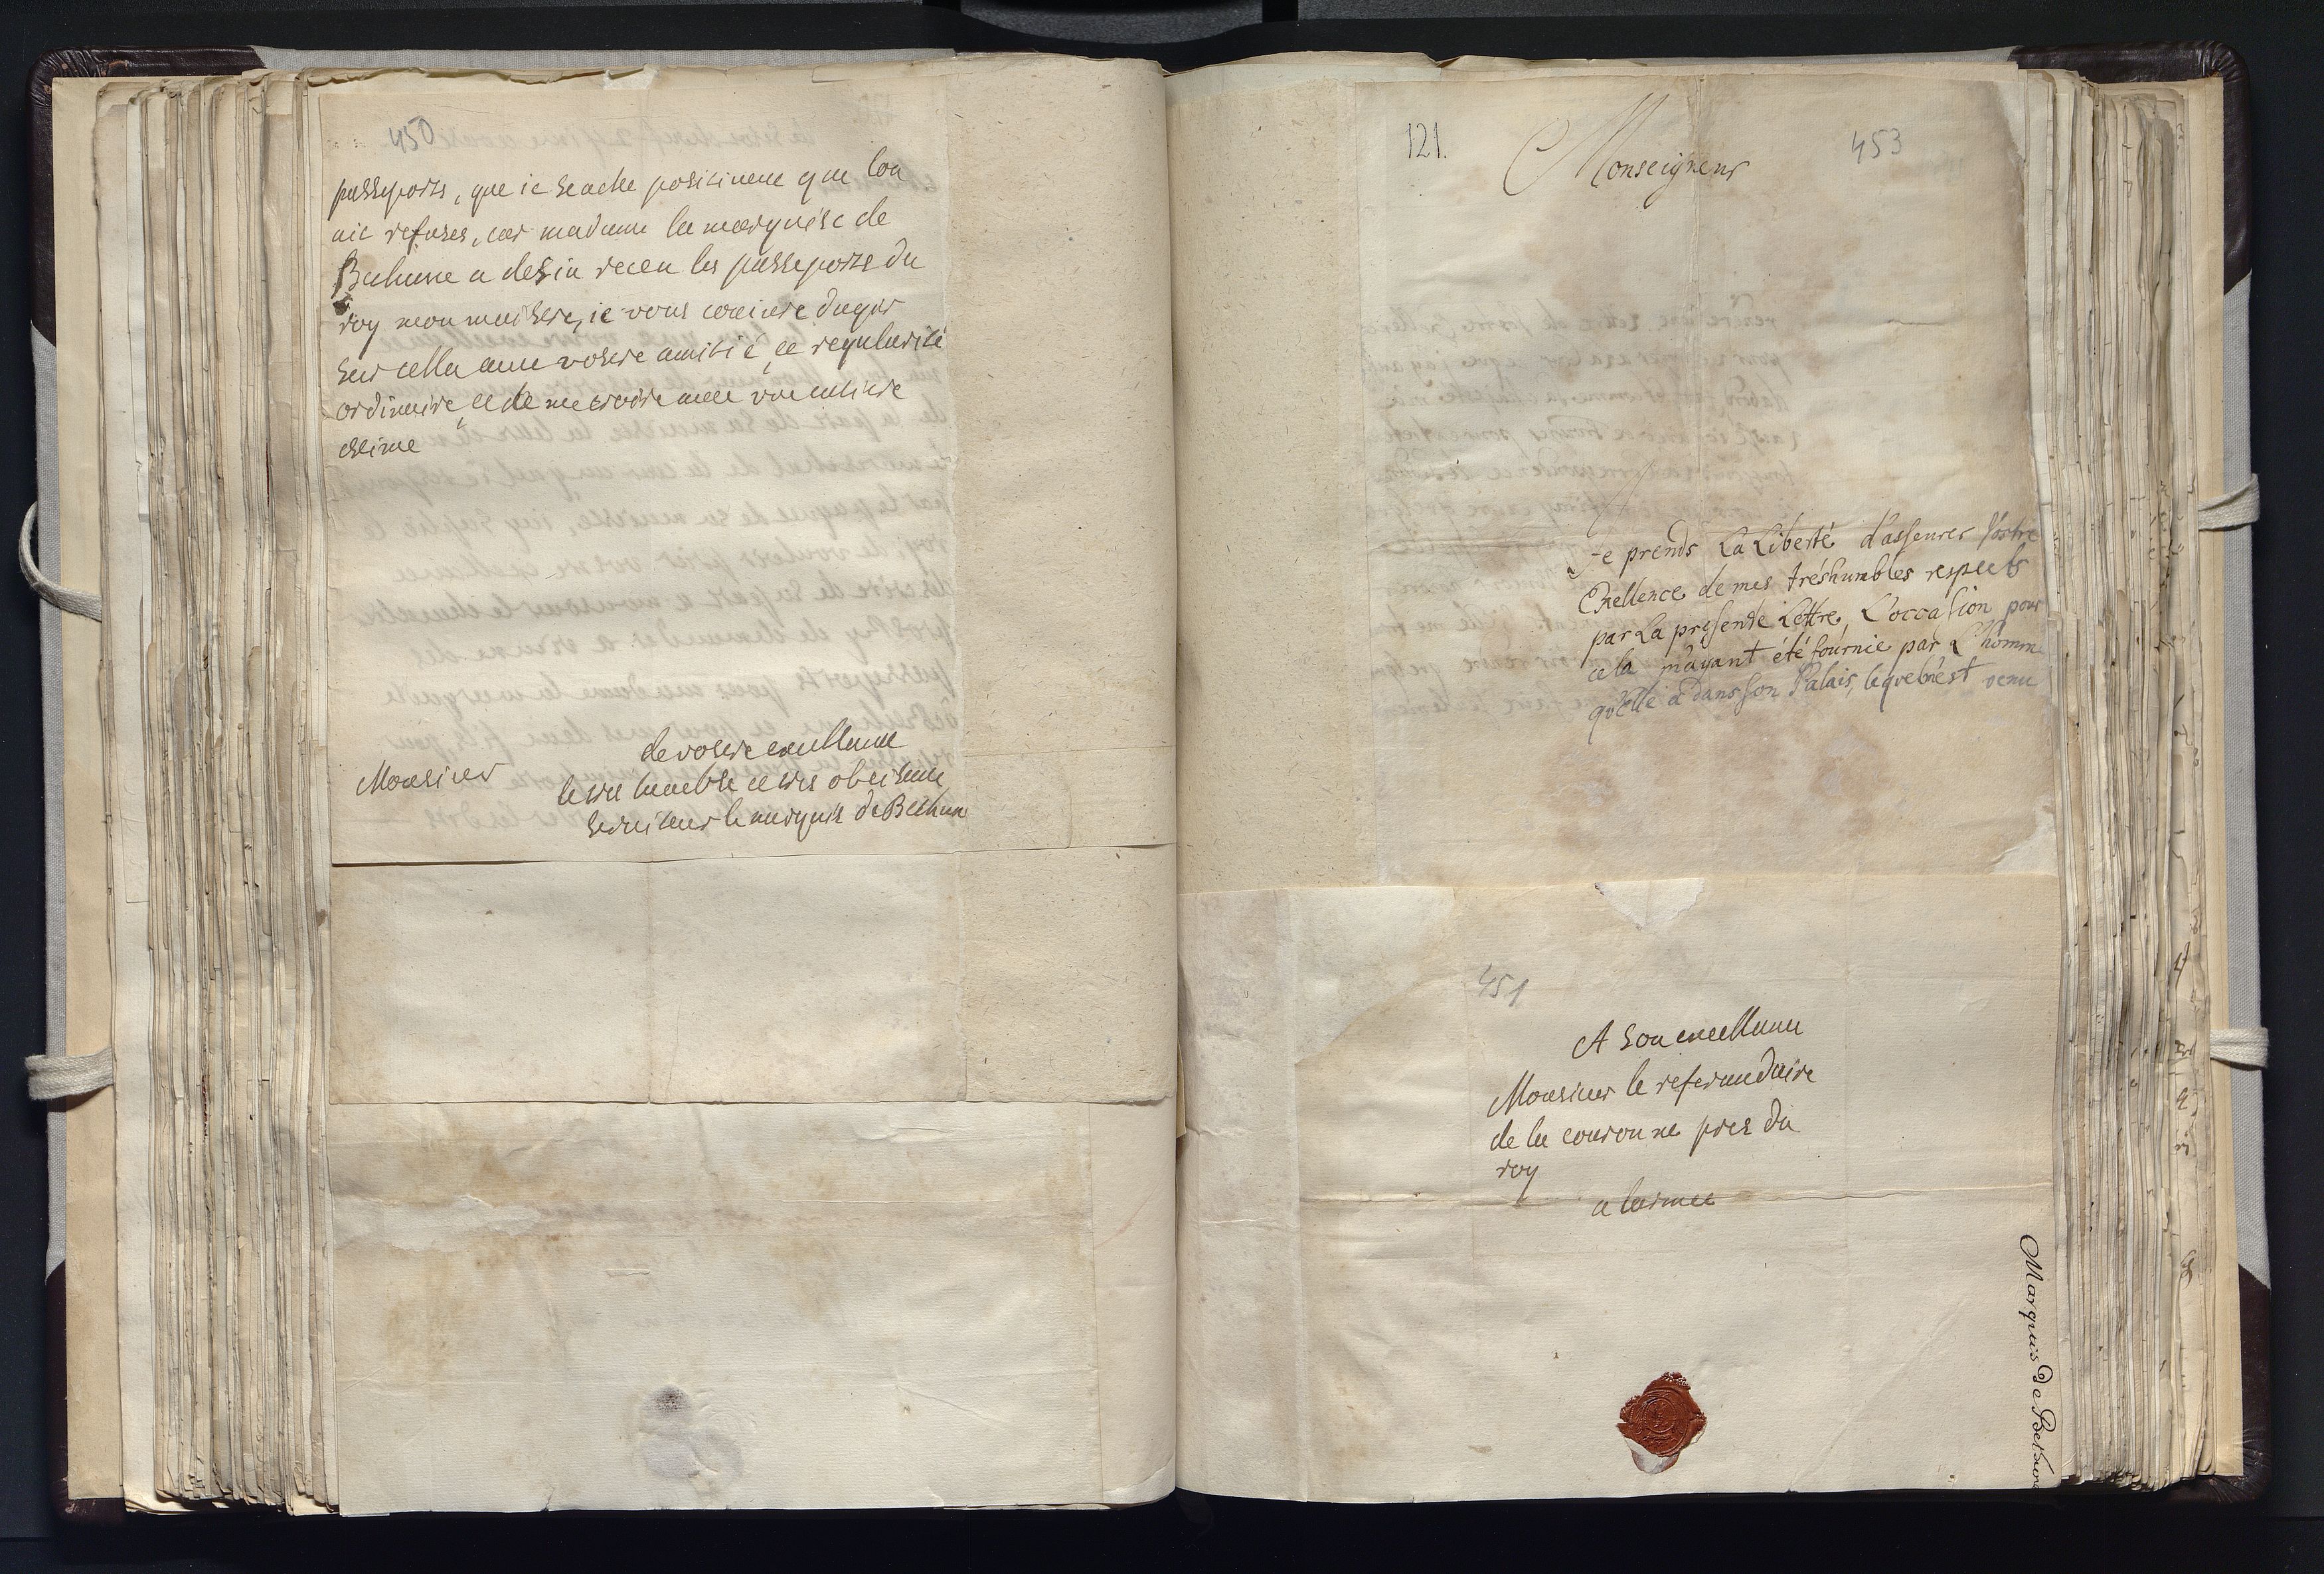 450
passeports, que ie scache positiveme que lon
aie refuses, car madame la marquise de
Bethune a desia receu les passeports du
roy mon maistre, ie vous coniure dagir
sur cella avec vostre amitié, et regularité
ordinaire, et de me croire avec une entiere
estime
de vostre excellance
Monsieur
le tres humble et tres obeisant
serviteur le marquis de Bethune
121.
453
Monseigneur
Je prends La Liberté d'asseurer Vostre
Exellence de mes tréshumbles respects
par La presente Lettre, L'occasion pour
cela m'ayant été fournie par L'homme
qu'Elle a dans son Palais, lequel n'est venu
451
A son excellance
Monsieur le referandaire
de la couronne pres du
roy
a larmee
Marquis de Bethune